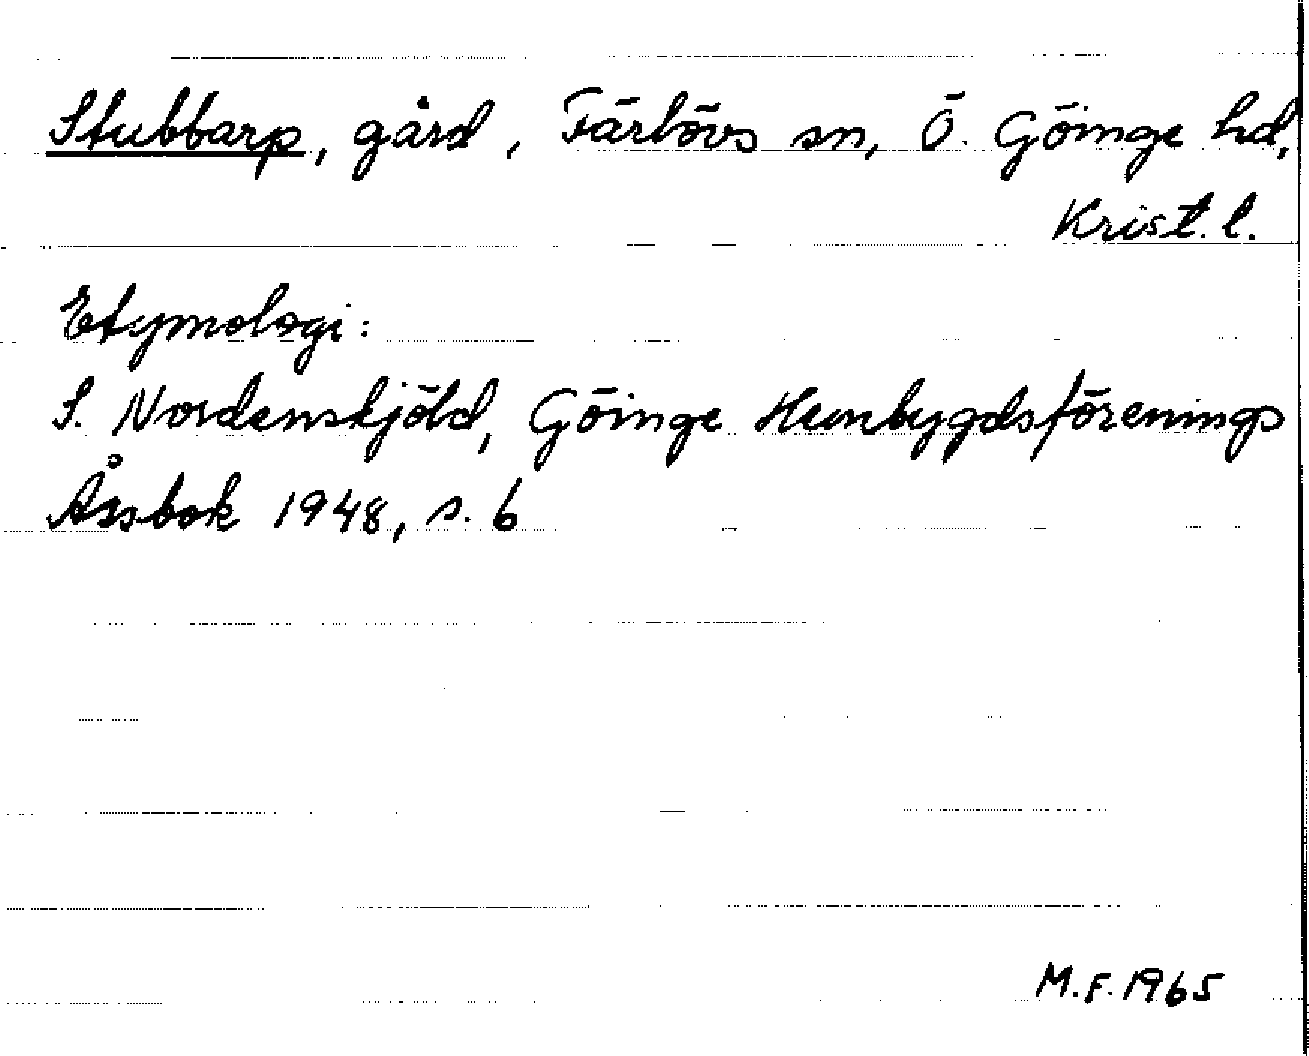 Stubbarp, gård, Färlövs sn, Ö. Göinge hd,
Krist. l.
Etymologi:
S. Nordenskjöld, Göinge Hembygdsförenings
Årsbok 1948, s. 6
M.F. 1965